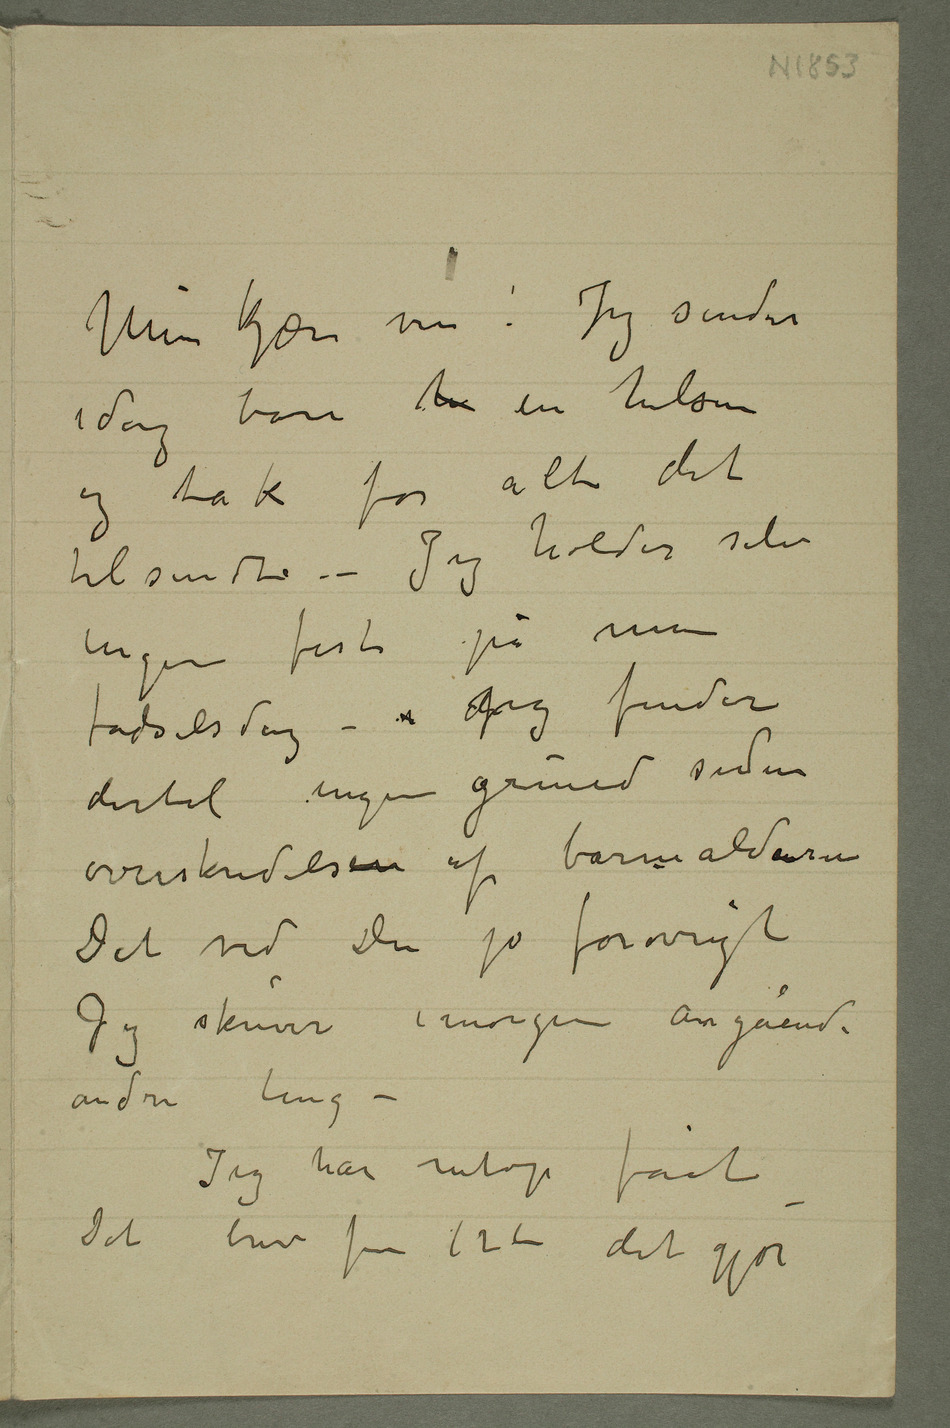 N1853
Min kjære ven! Jeg sender
idag bare en helsen
og tak for alt det
tilsendte – Jeg holder selv
ingen fest på min
fødselsdag – Jeg finder
dertil ingen grund siden
overskridelsen af barnealderen
Det ved Du jo forøvrigt
Jeg skriver imorgen angående
andre ting –
Jeg har netop fået
Dit brev fra 12te det gjør